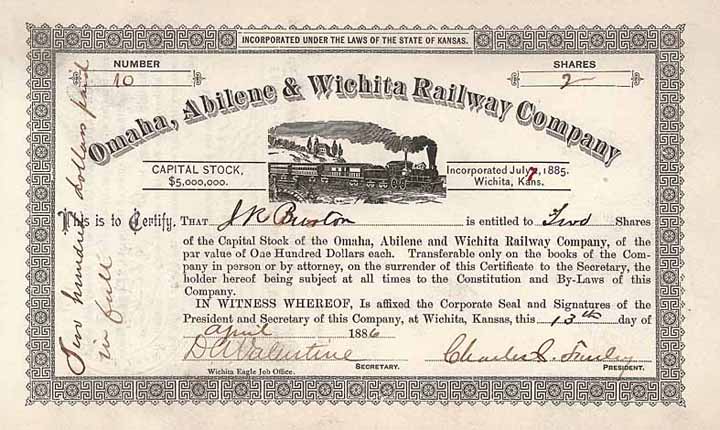 INCORPORATED UNDER THE LAWS OF THE STATE OF KANSAS.
NUMBER
10
SHARES
2
Omaha, Abilene & Wichita Railway Company
CAPITAL STOCK,
$5,000,000.
Incorporated July 7, 1885.
Wichita, Kans.
This is to Certify. THAT J.R. Burton is entitled to Two Shares
of the Capital Stock of the Omaha, Abilene and Wichita Railway Company, of the
par value of One Hundred Dollars each. Transferable only on the books of the Com-
pany in person or by attorney, on the surrender of this Certificate to the Secretary, the
holder hereof being subject at all times to the Constitution and By-Laws of this
Company.
IN WITNESS WHEREOF, Is affixed the Corporate Seal and Signatures of the
President and Secretary of this Company, at Wichita, Kansas, this 13th day of
April 1886
D A Valentine
SECRETARY.
Charles
PRESIDENT.
Wichita Eagle Job Office.
Two hundred dollars paid
in full